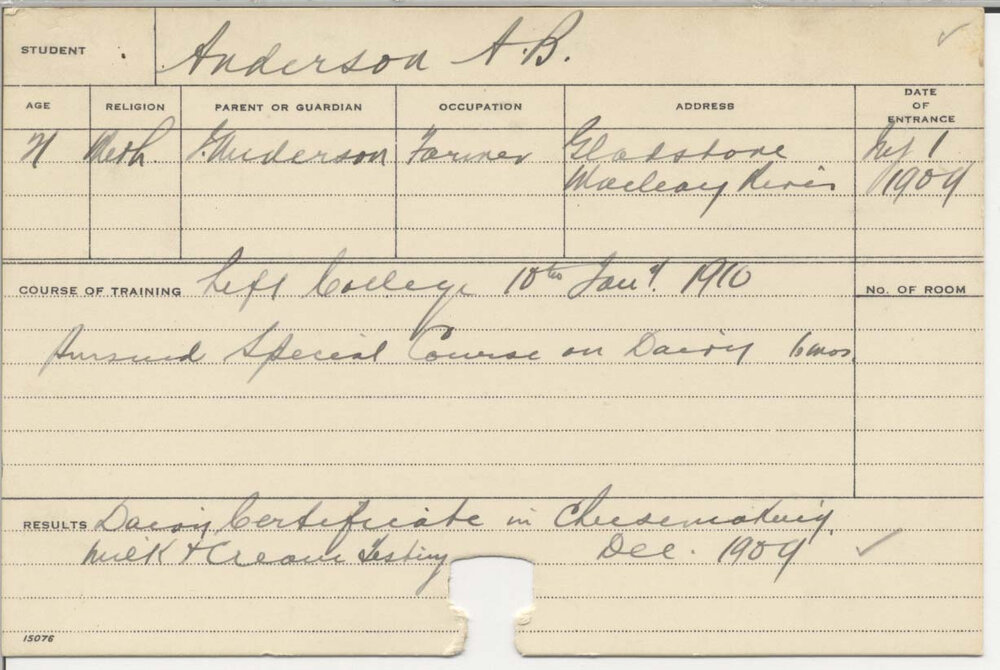 STUDENT Anderson A.B.
AGE RELIGION PARENT OR GUARDIAN OCCUPATION ADDRESS DATE OF ENTRANCE
21 Meth. J. Anderson Farmer Gladstone July 1
Macleay River 1909
COURSE OF TRAINING Left College 10th Jany. 1910
NO. OF ROOM
Pursued Special Course on Dairy 6 mos.
RESULTS Dairy Certificate in Cheesemaking,
Milk & Cream Testing Dec. 1909
15076